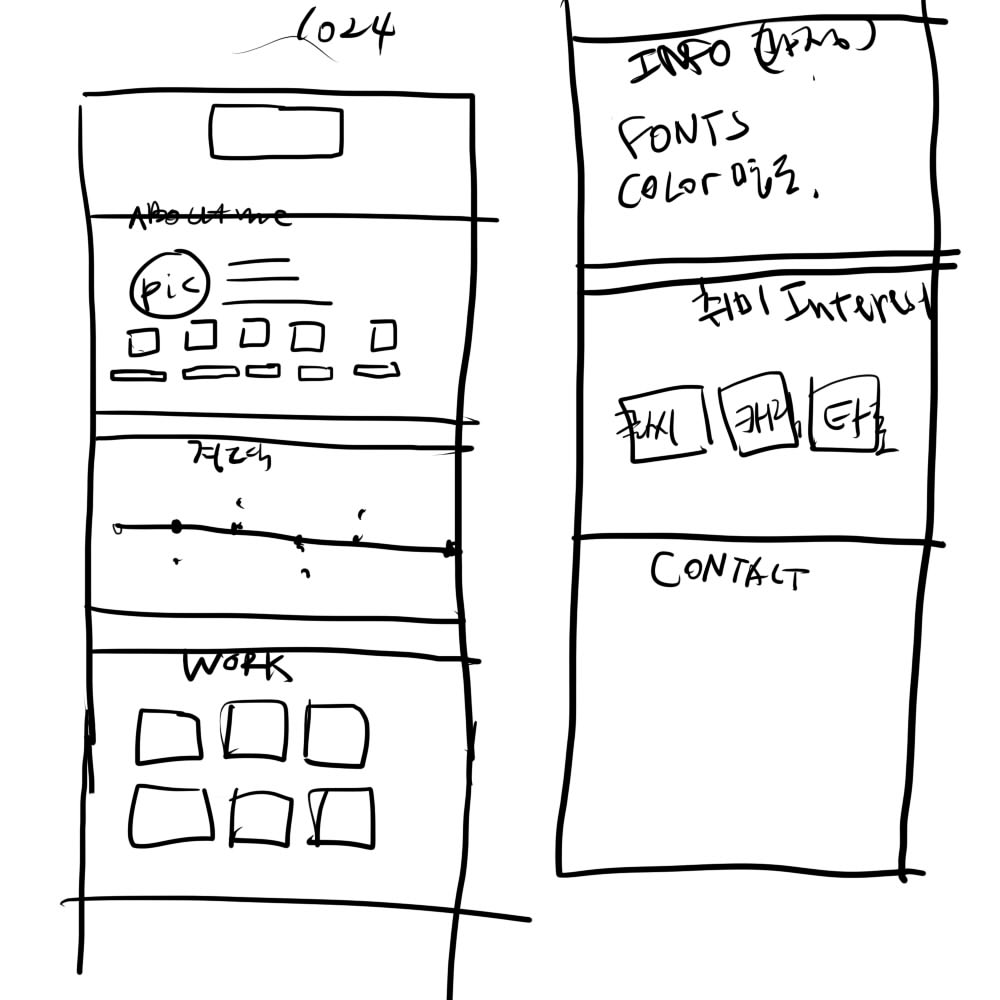 1024
ABOUT me
pic
경력
WORK
INFO
FONTS
COLOR
취미 Interest
CONTACT